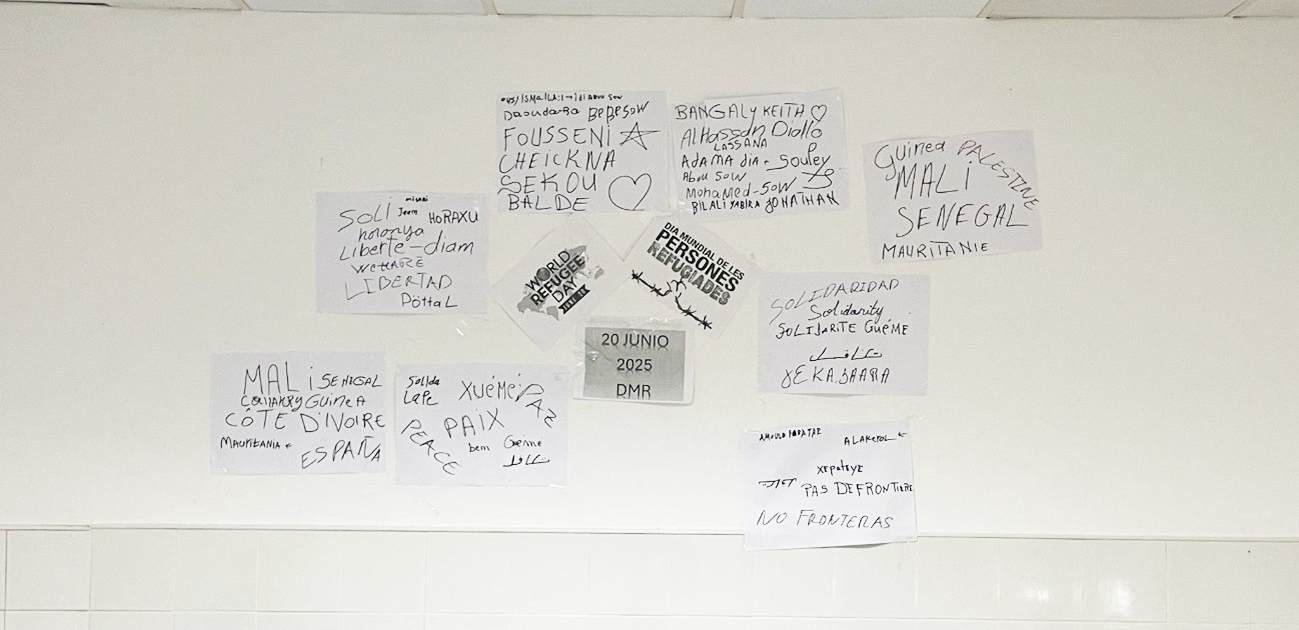 Daouda-Ba BeBeSOW
FOUSSENI
CHEICKNA
SEKOU
BALDE
BANGALY KEITA
AlHassan Diallo
LASSANA
ADAMA dia - Souley
Abou SOW
MohaMed-SOW
BILALI YABIRA JONATHAN
Guinea PALESTINE
MALi
SENEGAL
MAURITANIE
SOLI HORAXU
horonya
Liberte-diam
LIBERTAD
PöttaL
WORLD
REFUGEE
DAY
JUNE 20
DIA MUNDIAL DE LES
PERSONES
REFUGIADES
20 JUNIO
2025
DMR
SOLIDARIDAD
Solidarity
SOLIDARITE GUéME
MALi SENEGAL
CONAKRY GUINEA
CÔTE D'IVOIRE
MAURITANIA
ESPAÑA
XUéMé PAZ
PAIX
PEACE
ALAKEPOL
xepateye
PAS DEFRONTIERE
NO FRONTERAS